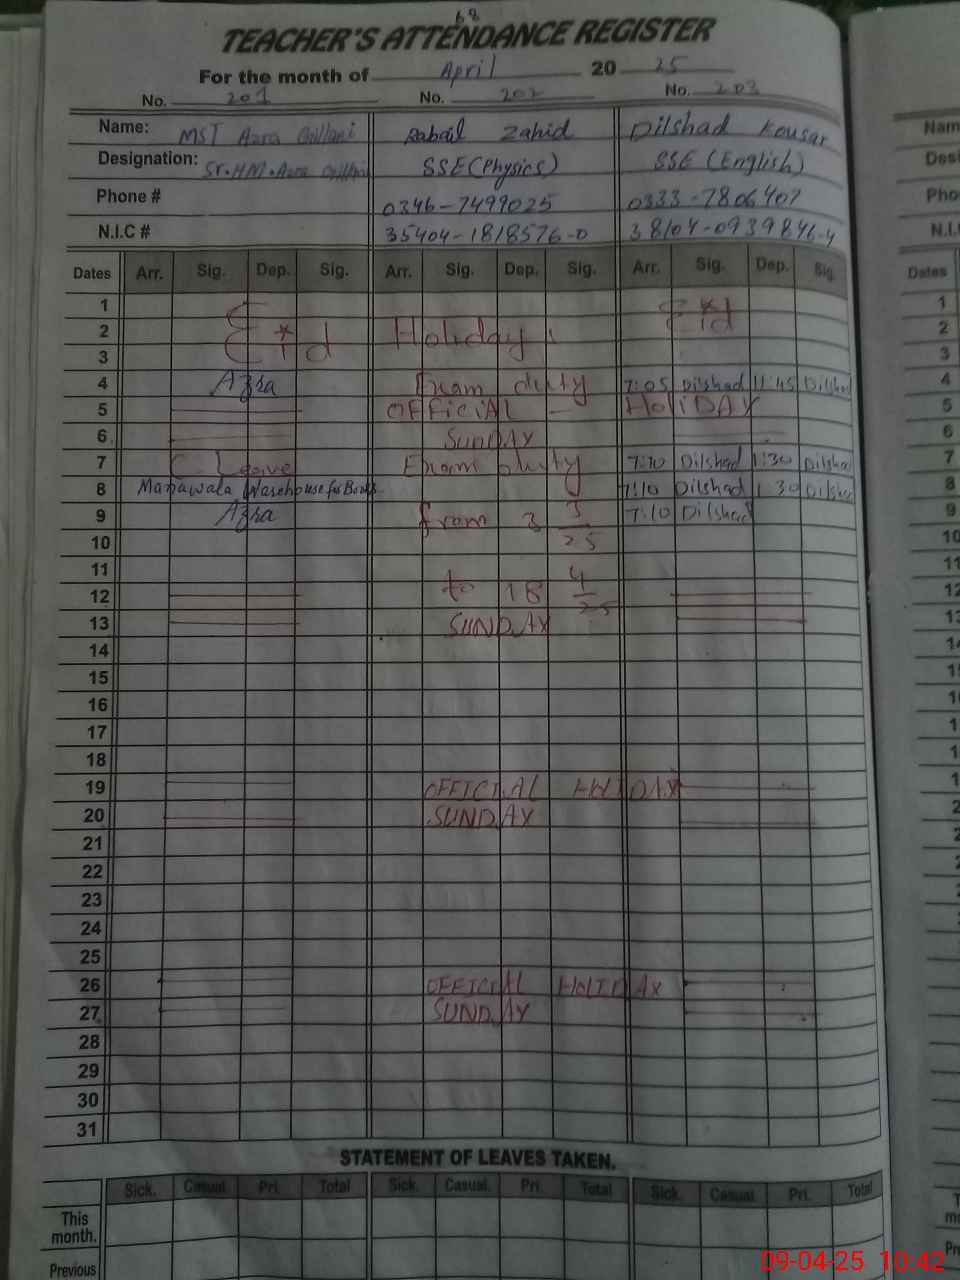 68
TEACHER'S ATTENDANCE REGISTER
For the month of April 20 25
No. 201 No. 202 No. 203
Name: MST Azra Gillani Rabail Zahid Dilshad Kousar
Designation: Sr.HM.Azra Gillani SSE(Physics) SSE (English)
Phone # 0346-7499025 0333-7806407
N.I.C # 35404-1818576-0 38104-0939846-4
Dates Arr. Sig. Dep. Sig. Arr. Sig. Dep. Sig. Arr. Sig. Dep. Sig.
1
2 Eid Holiday Eid
3
4 Azra Exam duty 7:05 Dilshad 11:45 Dilshad
5 OFFiCiAL - HoLiDAY
6 SUNDAY
7 C. Leave Exam duty 7:10 Dilshad 1:30 Dilshad
8 Manawala Warehouse for Books 7:10 Dilshad 1:30 Dilshad
9 Azra from 3 3/25 7:10 Dilshad
10
11
12 to 18 4/25
13 SUNDAY
14
15
16
17
18
19 OFFICIAL HOLIDAY
20 SUNDAY
21
22
23
24
25
26 OFFICIAL HOLIDAY
27 SUNDAY
28
29
30
31
STATEMENT OF LEAVES TAKEN.
Sick. Casual. Pri. Total Sick. Casual. Pri. Total Sick. Casual. Pri. Total
This
month.
Previous
09-04-25 10:42